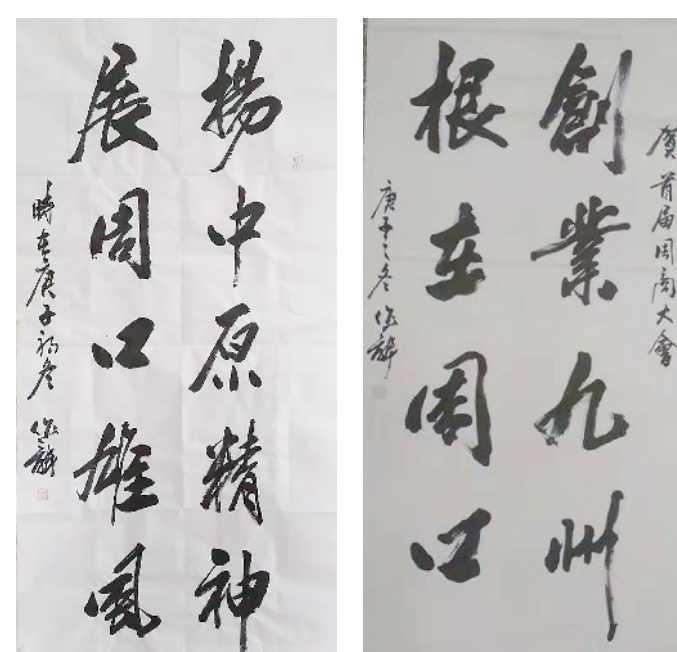 揚中原精神
展周口雄風
時在庚子初冬
賀首届周商大會
創業九州
根在周口
庚子之冬